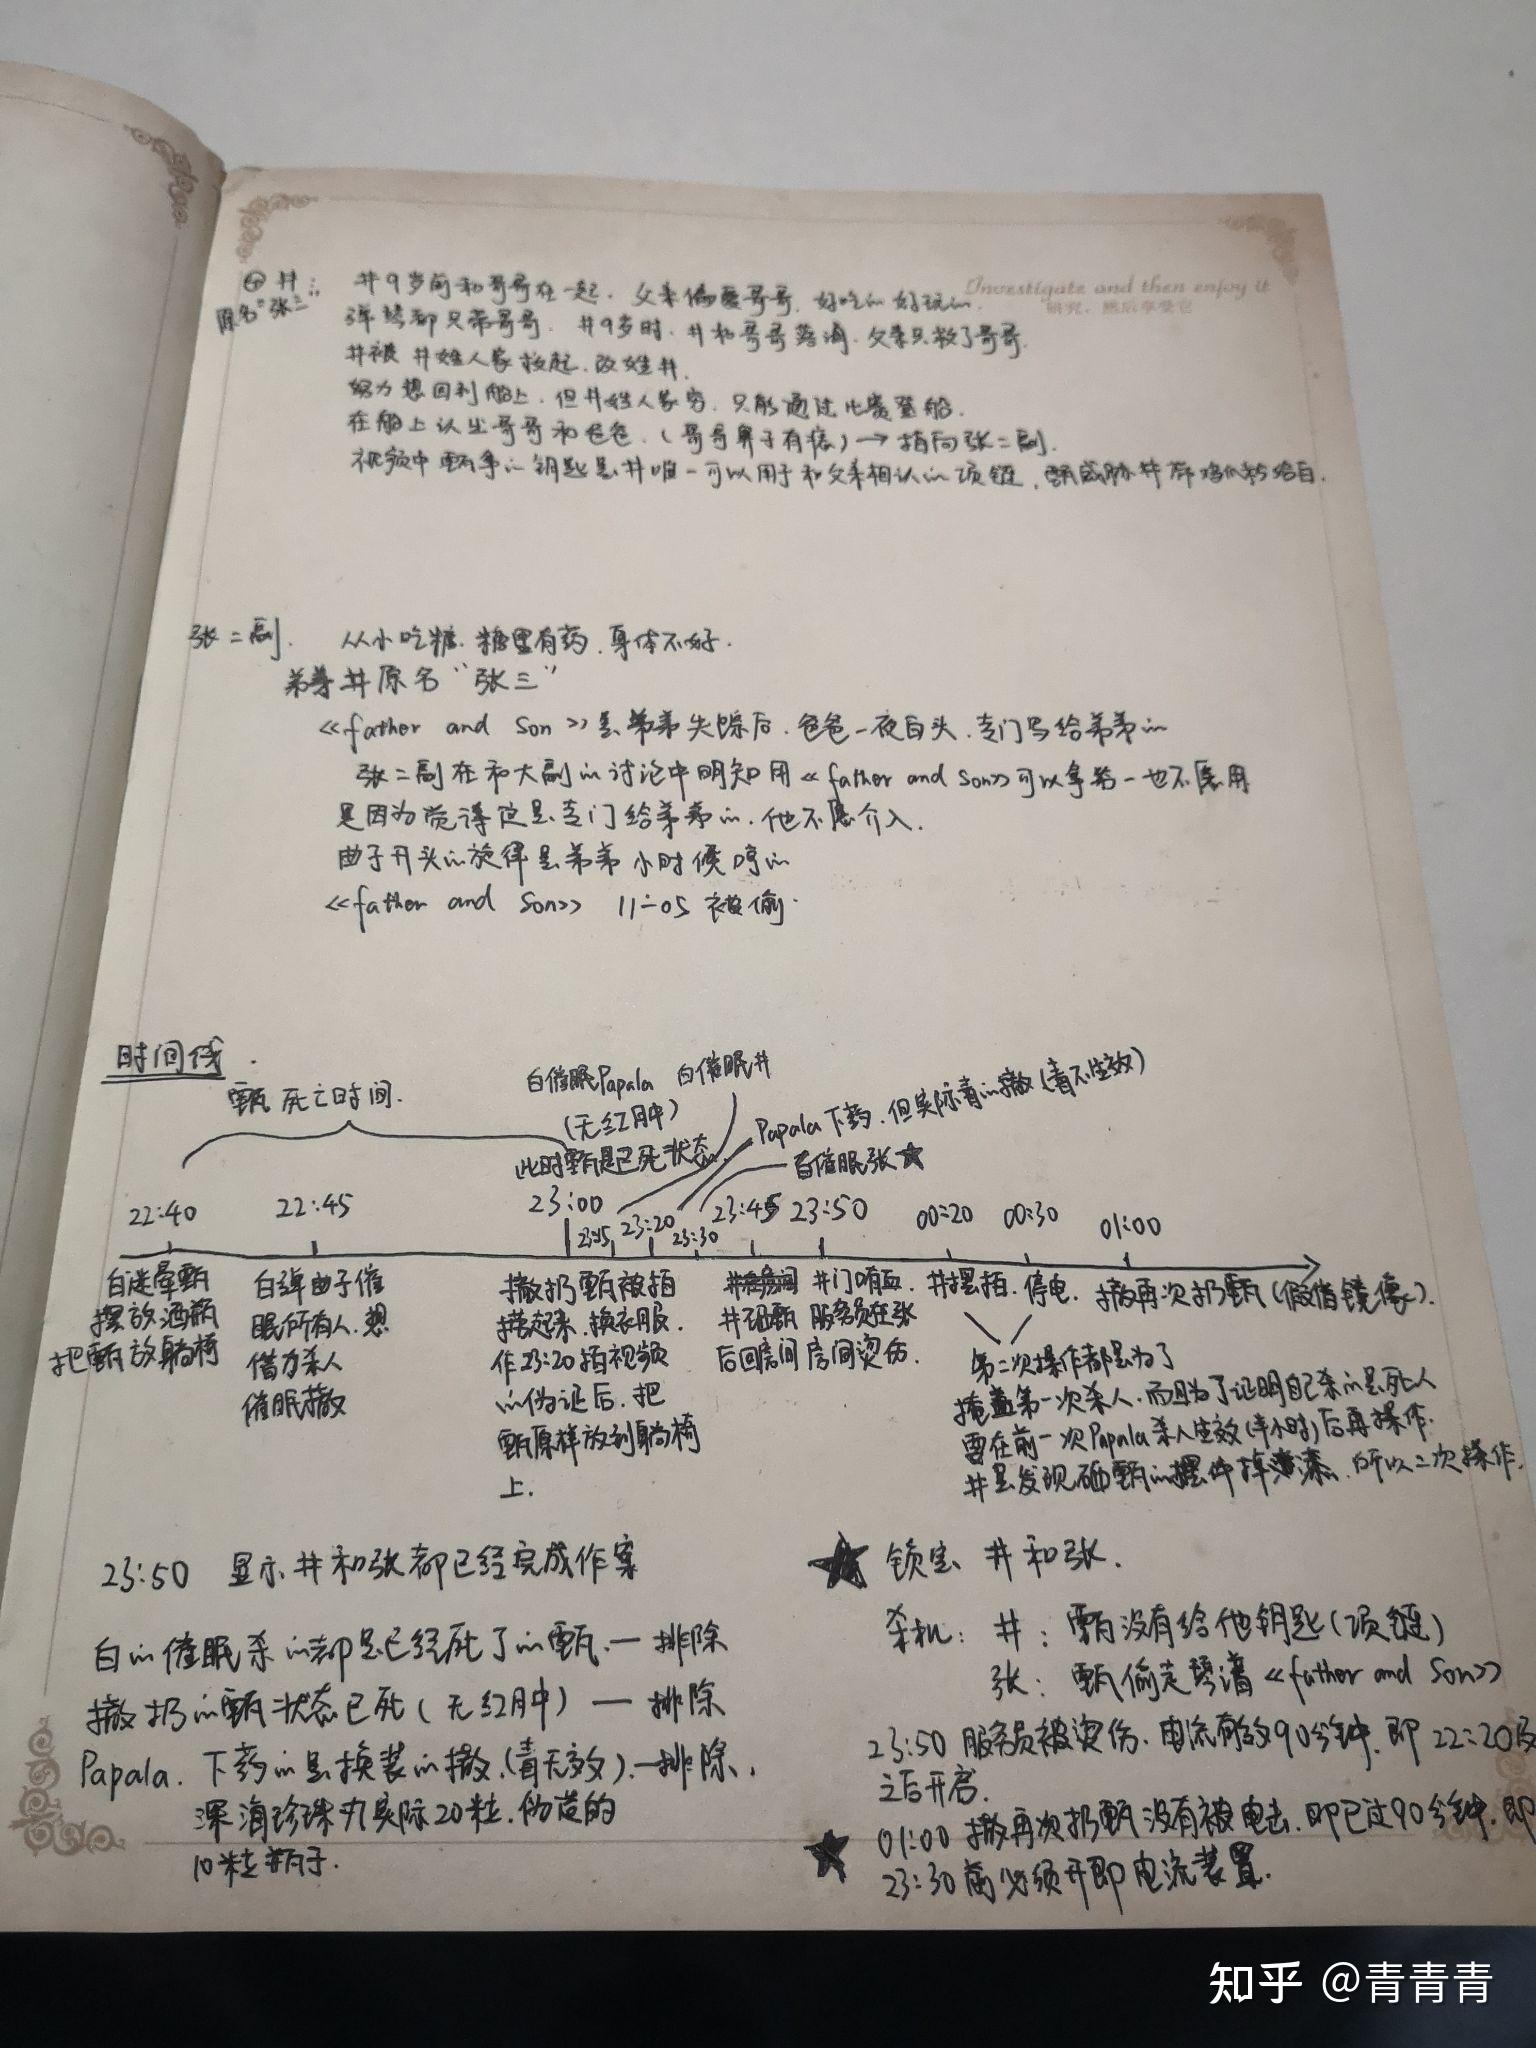 Investigate and then enjoy it
研究,然后享受它
④ 井:
原名"张三"
井9岁前和哥哥在一起. 父亲偏爱哥哥, 好吃的好玩的.
弹琴都只带哥哥. 井9岁时. 井和哥哥落海. 父亲只救了哥哥.
井被 井姓人家救起. 改姓井.
努力想回到船上, 但井姓人家穷. 只能通过比赛登船.
在船上认出哥哥和爸爸.(哥哥鼻子有痣)→ 指向张二副.
视频中甄拿的钥匙是井唯一可以用于和父亲相认的项链,
张二副. 从小吃糖. 糖里有药. 身体不好.
弟弟井原名"张三"
《father and Son》是弟弟失踪后. 爸爸一夜白头. 专门写给弟弟的
张二副在和大副的讨论中明知用《father and Son》可以拿第一也不愿用
是因为觉得这是专门给弟弟的. 他不愿介入.
曲子开头的旋律是弟弟小时候哼的
《father and Son》 11:05 被偷.
时间线.
甄死亡时间.
白催眠Papala
(无红肿)
此时甄是已死状态.
白催眠井
Papala下药, 但实际毒的撒(毒不生效)
白催眠张★
22:40 22:45 23:00 23:15 23:20 23:30 23:45 23:50 00:20 00:30 01:00
白迷晕甄
摆放酒瓶
把甄放躺椅
白弹曲子催
眠所有人. 想
借刀杀人
催眠撒
撒扔甄被拍
撒起来. 换衣服.
作23:20拍视频
的伪证后. 把
甄原样放到躺椅
上.
井砸甄
后回房间
井门响血.
服务员在张
房间烫伤.
井摆拍. 停电. 撒再次扔甄(假借镜像).
第二次操作都是为了
掩盖第一次杀人. 而且为了证明自己杀的是死人
需在前一次Papala杀人生效(半小时)后再操作.
井是发现砸甄的摆件掉漆. 所以二次操作.
23:50 显示井和张都已经完成作案
白的催眠杀的都是已经死了的甄. — 排除
撒扔的甄状态已死(无红肿) — 排除
Papala. 下药的是换装的撒.(毒无效).—排除.
深海珍珠丸实际20粒. 伪造的
10粒瓶子.
★ 锁定 井和张.
杀机: 井: 甄没有给他钥匙(项链)
张: 甄偷走琴谱《father and Son》
23:50 服务员被烫伤. 电流有效90分钟. 即 22:20及
之后开启.
★ 01:00 撒再次扔甄没有被电击. 即已过90分钟. 即
23:30前必须开即电流装置.
知乎 @青青青